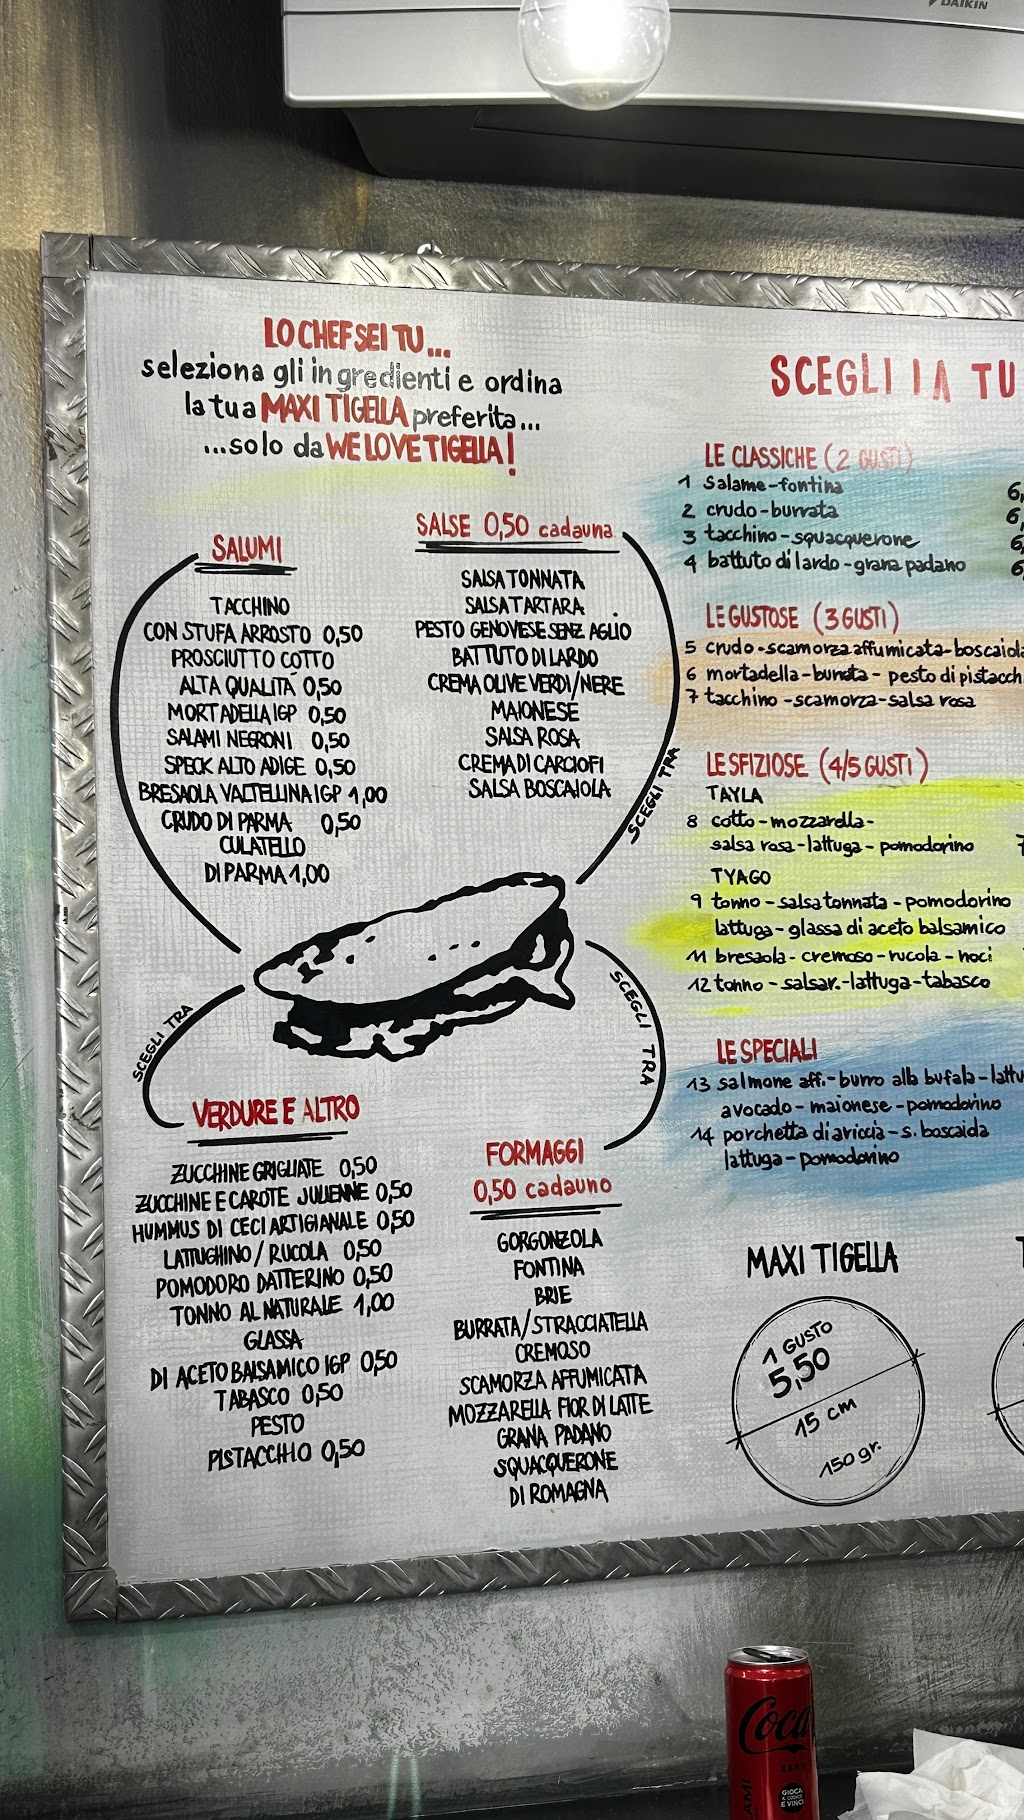 DAIKIN
LO CHEF SEI TU...
seleziona gli ingredienti e ordina
la tua MAXI TIGELLA preferita...
...solo da WE LOVE TIGELLA!
SALUMI
TACCHINO
CON STUFA ARROSTO 0,50
PROSCIUTTO COTTO
ALTA QUALITÀ 0,50
MORTADELLA IGP 0,50
SALAMI NEGRONI 0,50
SPECK ALTO ADIGE 0,50
BRESAOLA VALTELLINA IGP 1,00
CRUDO DI PARMA 0,50
CULATELLO
DI PARMA 1,00
SALSE 0,50 cadauna
SALSA TONNATA
SALSA TARTARA
PESTO GENOVESE SENZ AGLIO
BATTUTO DI LARDO
CREMA OLIVE VERDI/NERE
MAIONESE
SALSA ROSA
CREMA DI CARCIOFI
SALSA BOSCAIOLA
SCEGLI TRA
SCEGLI TRA
SCEGLI TRA
VERDURE E ALTRO
ZUCCHINE GRIGLIATE 0,50
ZUCCHINE E CAROTE JULIENNE 0,50
HUMMUS DI CECI ARTIGIANALE 0,50
LATTUGHINO / RUCOLA 0,50
POMODORO DATTERINO 0,50
TONNO AL NATURALE 1,00
GLASSA
DI ACETO BALSAMICO IGP 0,50
TABASCO 0,50
PESTO
PISTACCHIO 0,50
FORMAGGI
0,50 cadauno
GORGONZOLA
FONTINA
BRIE
BURRATA/STRACCIATELLA
CREMOSO
SCAMORZA AFFUMICATA
MOZZARELLA FIOR DI LATTE
GRANA PADANO
SQUACQUERONE
DI ROMAGNA
SCEGLI LA TU
LE CLASSICHE (2 GUSTI)
1 salame-fontina 6,
2 crudo-burrata 6,
3 tacchino-squacquerone 6,
4 battuto di lardo-grana padano 6
LE GUSTOSE (3 GUSTI)
5 crudo-scamorza affumicata-boscaiola
6 mortadella-burrata- pesto di pistacch
7 tacchino-scamorza-salsa rosa
LE SFIZIOSE (4/5 GUSTI)
TAYLA
8 cotto-mozzarella-
salsa rosa-lattuga-pomodorino 7
TYAGO
9 tonno-salsa tonnata-pomodorino
lattuga-glassa di aceto balsamico
11 bresaola-cremoso-rucola-noci
12 tonno-salsar.-lattuga-tabasco
LE SPECIALI
13 salmone aff.-burro alla bufala-lattu
avocado-maionese-pomodorino
14 porchetta di ariccia-s. boscaiola
lattuga-pomodorino
MAXI TIGELLA
1 GUSTO
5,50
15 cm
150 gr.
Coca
ZERO
GIOCA
IL CODICE
E VINCI